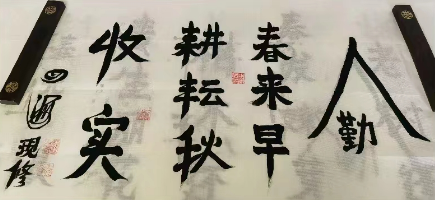 人勤
春来早
耕耘秋
收实
现修